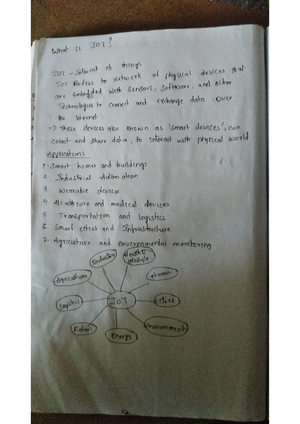 What is IOT?
IOT - Internet of things
IOT Refers to Network of physical devices that
are Embedded with Sensors, Software, and other
Technologies to Connect and exchange data over
the Internet
→ These devices also known as 'smart devices', can
collect and share data, to interact with physical world
Applications
1. Smart homes and buildings
2. Industrial Automation
3 Wearable devices
4 Healthcare and medical devices
5 Transportation and logistics
6 Smart cities and Infrastructure
7. Agriculture and environmental monitoring
Industry
Health &
lifestyle
Agriculture
Homes
Logistics
IOT
Cities
Retail
Energy
Environment